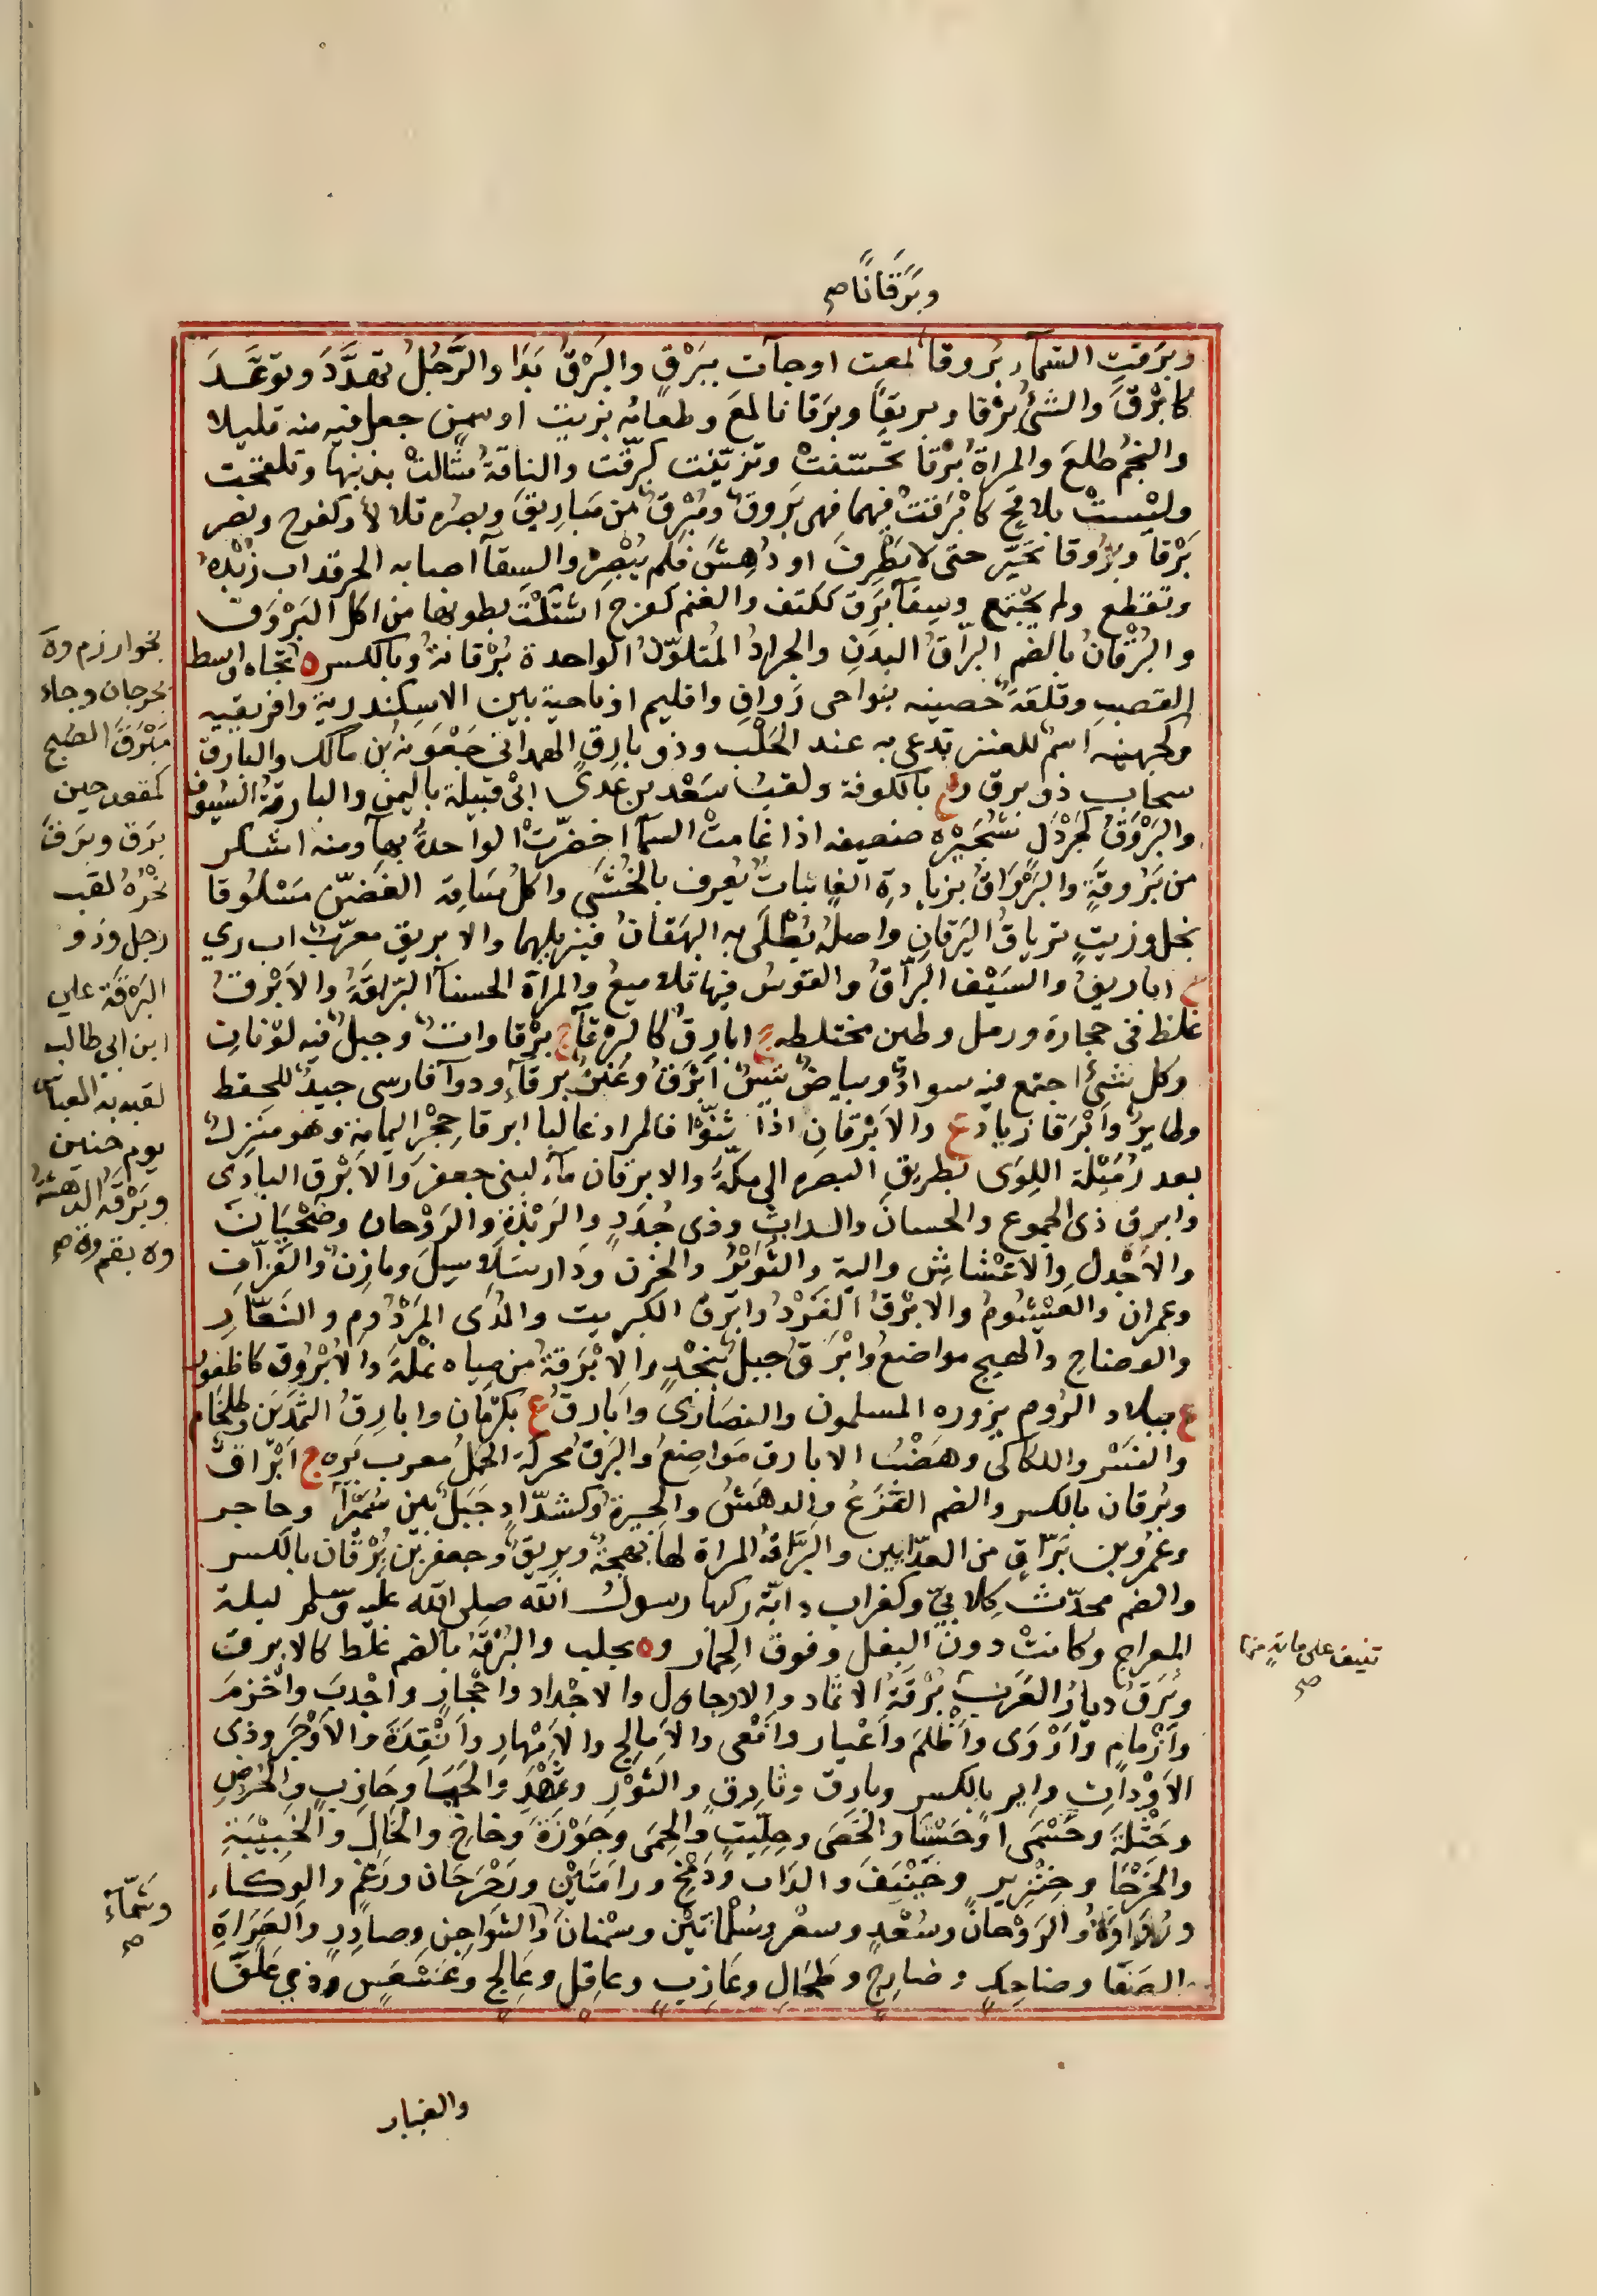 وبَرَقَانًا صح
وبرَقتِ السمآء بُروقا لمعت او جآت ببَرْقٍ والبَرْقُ بَدَا والرَّجُلُ تهدَّدَ وتوعَّدَ
كابْرَقَ والشئُ بَرْقا وبريقًا وبرَقانا لمعَ وطعامَه بزيت او سمن جعل فيه منه قليلا
والنجمُ طلعَ والمراةُ بَرْقا تحسّنتْ وتزيّنت كبرّقت والناقةُ شالتْ بذنبها وتلقحت
وليْستْ بلاقحٍ كابْرَقتْ فيهما فهى بَروقٌ ومُبْرِقٌ من مَبارِيقَ وبصره تلالأ وكفرح ونصر
بَرْقًا وبُروقا تحَيَّر حتى لا يَطْرِفَ او دُهِشَ فلم يُبْصِرْ والسِقآ اصابه الحر فذاب زُبْدُه
وتقطع ولم يجتمع وسِقآ بَرِق ككتف والغنم كفرح اشتكَتْ بطونها من اكل البَرْوَق
والبُرْقانُ بالضم البراقُ البدنِ والجرادُ المُتلوّن الواحدة بُرْقانةٌ وبالكسر ة بخوارزم وة
بجرجان وجاء
مَبْرَقَ الصبح
كمقعد حين
برق وبرق
نحْرُهُ لقب
رجل وذو
البَرْقَة علي
ابن ابي طالب
لقبه به العباس
يوم حنين
وبَرْقةُ ة بقم وة صح
تجاه واسط
القصب وقلعة حَصينه بنواحى دَوان واقليم او ناحية بين الاسكندرية وافريقيه
وكجهينه اسمٌ للعنز تدعى به عند الحَلْب وذو بارِق الهمدانى جَعْوَنة بن مالك والبارق
سحاب ذو برق وع بالكوفة ولقبُ سَعْد بن عَدىّ ابى قبيلة باليمن والبارقةُ السُيوف
والبَرْوَقُ كجَرْوَل شُجَيْرة ضعيفه اذا غامت السمآ اخضرّت الواحدة بهآء ومنه اشكر
من بَرْوقَةٍ والبَرْوَاقُ بزيادةِ الف نباتٌ يُعرف بالخُنثَى واكلُ سَاقه الغَضّ مَسْلوُقا
بخل وزيتٍ ترياقُ اليَرَقانِ واصلُه يُطْلَى به البَهَقانُ فيزيلهما والابريق معرّب اب ري
ج اباريقُ والسَيْف البرّاقُ والقوسُ فيها تلاميعُ والمراة الحسنآ البرّاقةُ والابْرقُ
غلظ فى حجارة ورمل وطين مختلطه ج ابارِقُ كالبرقآ ج بَرْقاوات وجبلٌ فيه لوْنانِ
وكل شئ اجتمع فيه سوادٌ وبياضٌ تيسٌ اَبْرقُ وعَنزٌ بَرقآءُ ودوآ فارسى جيد للحفظ
وطايرٌ واَبْرَقا زياد ع والابْرقانِ اذا ثنّوْا فالمراد غالبا ابرقا حِجْرِ اليمامةِ وهو مَنزل
بعد رُمَيْلَة اللِوَى بطريق البصره الى مكّةَ والابرقان مآء لبنى جعفر والابْرق البادى
وابرق ذى الجموع والحسانَ والداثِ وذى جُدَد والرَبْذَة والرَوْحان وضَحْيَانَ
والاَجْدل والاعْشاش والية والثوَيْر والحَزن ودار سَلاسِلَ ومازنٍ والعَزّاف
وعمران والعَيْشُوم والابْرقُ الفَرْدُ وابْرَقُ الكبريت والمُدَى المَرْدُوم والنَعّار
والوضاح والهيج مواضعُ واَبْرَقُ جبلٌ بنَجْد والابْرَقةُ من مياه نَمْلةَ والاُبْرُوق كاظفور
ع ببلاد الرُوم يزوره المسلمون والنصَارَى واَبارقُ ع بكرْمان وابارقُ الثمَدَين وطلخام
والنَسْر واللكاكى وهَضْبُ الابارق مَواضعُ والبَرَقُ محركة الحَمَلُ معرب بَره ج اَبْرَاقٌ
وبُرقان بالكسر والضم الفَزَعُ والدهَشُ والحيرة وكشدّادٍ جَبَلٌ بين سُمَيْرآ وحاجر
وعَمْرو بن بَرّاقٍ من العدّايين والبَرّاقةُ المراة لها بَهجةٌ وبريقٌ وجعفر بن بُرْقان بالكسر
والضم محدّث كِلابىّ وكغراب دابّة ركبها رسول الله صلى الله عليه وسلم ليلة
المعراج وكانتْ دون البغل وفوق الحِمار وة بحلب والبُرْقةُ بالضم غلظ كالابرق
تنيف على مايةٍ منها صح
وبُرَق ديار العَرَب بُرْقَةُ الاثماد والاجاول والاجْداد واحْجار واجْدبَ واخْزمَ
وازْمام واَرْوَى واَظلمَ واَعْيار واَفْعى والاَمالح والاَمْهارِ واَنْقِدَةَ والاَوْجَر وذى
الاوْداتِ واِير بالكسر وبارق وثادِق والثَوْر وثَهْمَد والجَبَا وحَارِبٍ والحُرُضِ
وحَسْلَةَ وحَسْمَى او حَسْنا والحَصَى وحِلِّيتٍ والحِمَى وحَوْزَةَ وخاخٍ والخَال والخُبَيْبَةِ
والخَرْجا وخِنْزِير وخَيْنَفَ والداث ودَمْخٍ ورامَتَيْنِ ورَحْرَحَان ورَعْم والرَكاء
وشَمّآء صح
ورُواوَةُ والرَوْحانِ وسُعْدٍ وسعر وسُلْمانَيْن وسمْنانَ والشَواجِن وصادِرٍ والصَراة
الصَفا وضاحِكٍ وضارِجٍ وطِحَالِ وعَاذِبٍ وعاقِلٍ وعَالِج وعَسْعَسٍ وذي عَلْقَى
والغبار